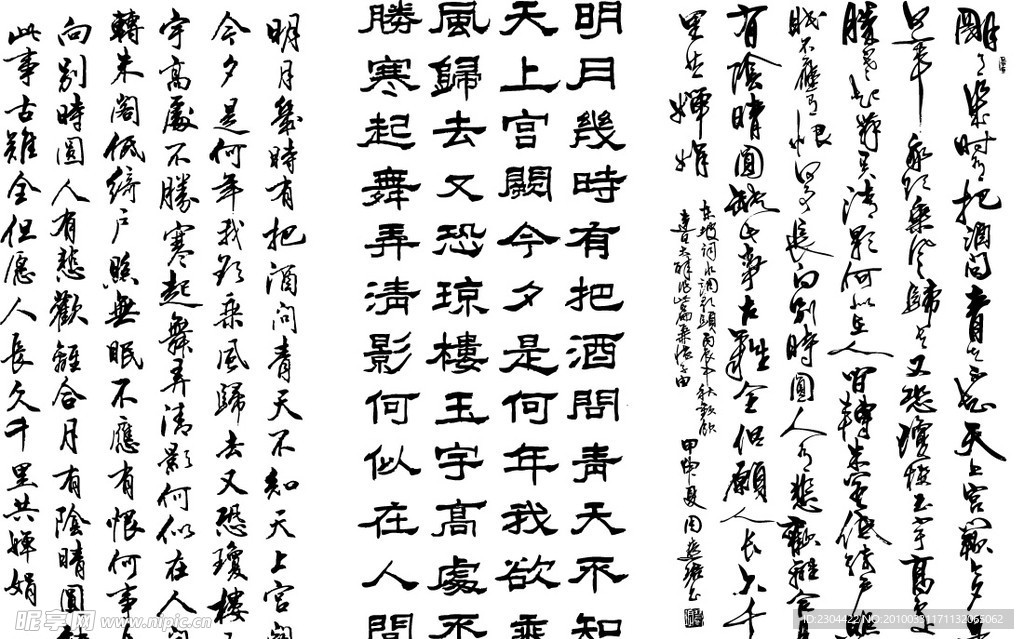 明月幾時有把酒問青天天上宮闕今夕是
年我欲乘風歸去又恐瓊樓玉宇高處
勝寒起舞弄清影何似在人間轉朱閣低綺戶照
眠不應有恨何事長向別時圓人有悲歡離合月
有陰晴圓缺此事古難全但願人長久千
里共嬋娟
東坡詞水調歌頭丙辰中秋歡飲
達旦大醉作此篇兼懷子由
甲申夏周
明月幾時有把酒問青天不知
天上宮闕今夕是何年我欲乘
風歸去又恐琼樓玉宇高處不
勝寒起舞弄清影何似在人間
明月幾時有把酒問青天不知天上宮闕
今夕是何年我欲乘風歸去又恐瓊樓玉
宇高處不勝寒起舞弄清影何似在人間
轉朱閣低綺戶照無眠不應有恨何事長
向別時圓人有悲歡離合月有陰晴圓缺
此事古難全但願人長久千里共嬋娟
昵享网 www.nipic.cn
ID:2304422 NO:20100331171132065062